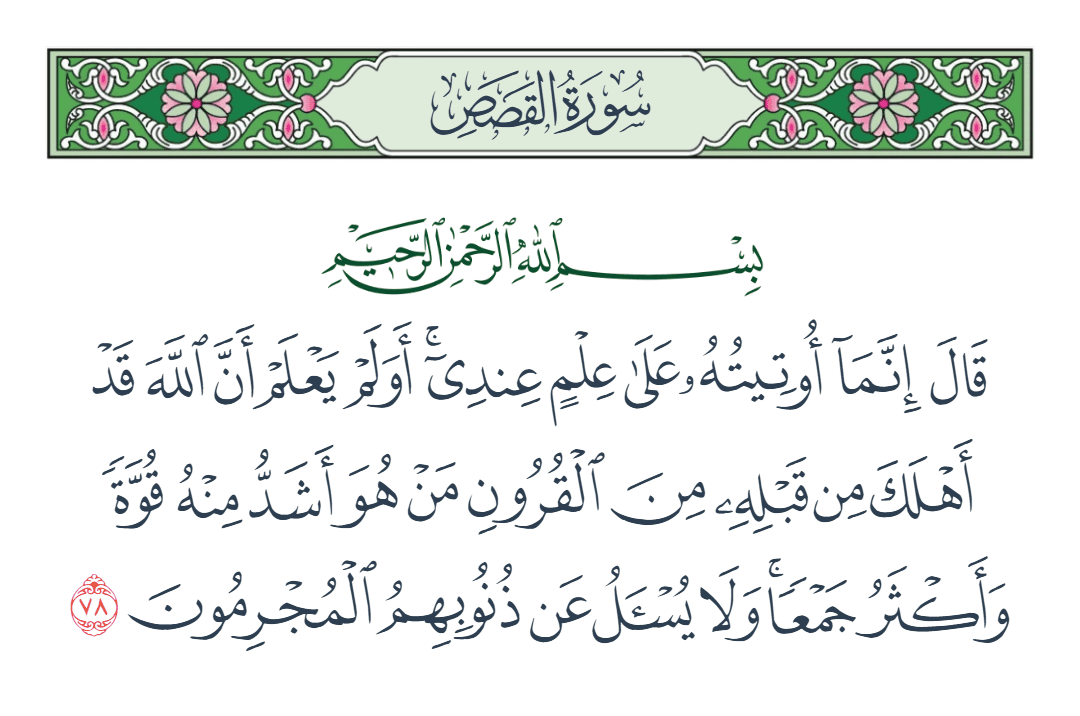 سُورَةُ القَصَصِ
بِسْمِ ٱللَّهِ ٱلرَّحْمَٰنِ ٱلرَّحِيمِ
قَالَ إِنَّمَآ أُوتِيتُهُۥ عَلَىٰ عِلْمٍ عِندِىٓ ۚ أَوَلَمْ يَعْلَمْ أَنَّ ٱللَّهَ قَدْ
أَهْلَكَ مِن قَبْلِهِۦ مِنَ ٱلْقُرُونِ مَنْ هُوَ أَشَدُّ مِنْهُ قُوَّةً
وَأَكْثَرُ جَمْعًا ۚ وَلَا يُسْـَٔلُ عَن ذُنُوبِهِمُ ٱلْمُجْرِمُونَ ٧٨